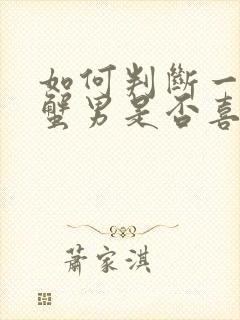 如何判斷一
蟹男是否喜
蕭家淇